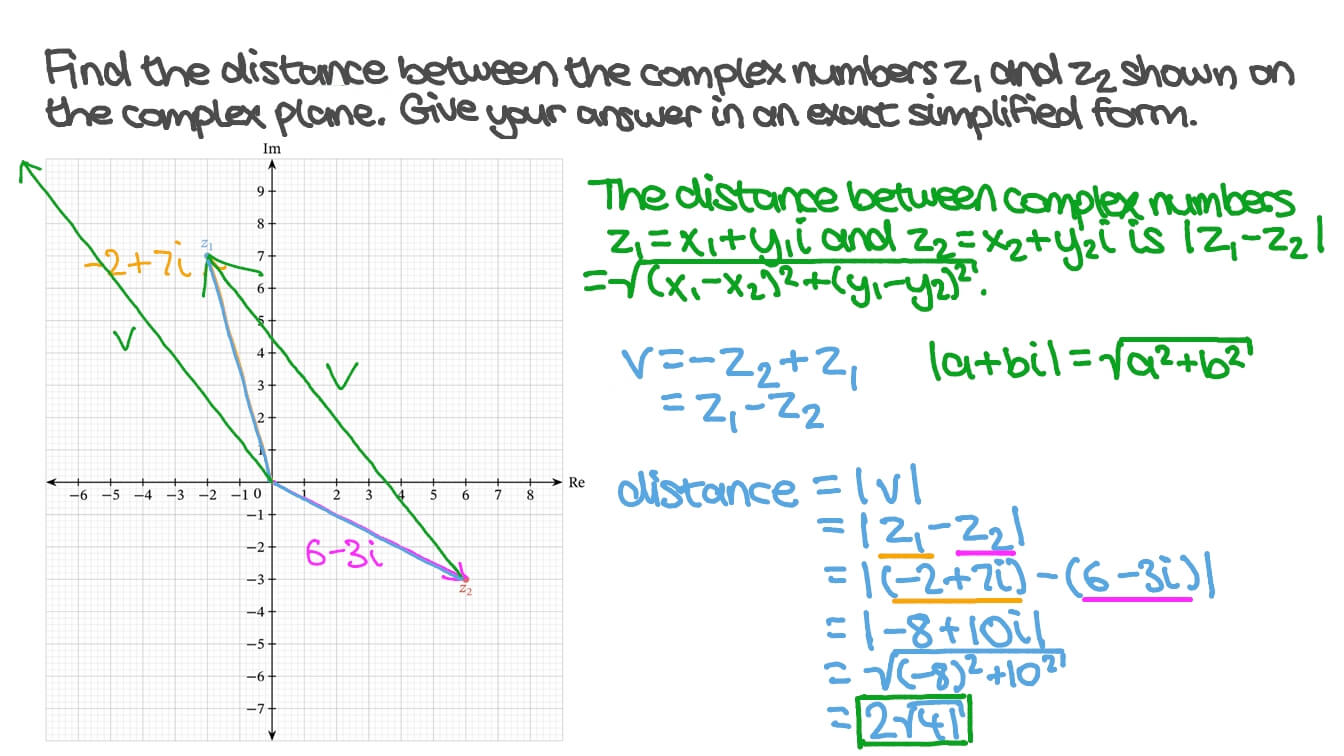 Find the distance between the complex numbers z₁ and z₂ shown on
the complex plane. Give your answer in an exact simplified form.
Im
9
8
z₁
7
-2+7i
6
5
4
3
2
1
V
V
−6 −5 −4 −3 −2 −1 0 1 2 3 4 5 6 7 8 Re
−1
−2
6-3i
−3
z₂
−4
−5
−6
−7
The distance between complex numbers
z₁=x₁+y₁i and z₂=x₂+y₂i is |z₁-z₂|
=√(x₁-x₂)²+(y₁-y₂)².
V=-z₂+z₁
=z₁-z₂
|a+bi|=√a²+b²
distance = |v|
= |z₁-z₂|
= |(-2+7i)-(6-3i)|
= |-8+10i|
= √(-8)²+10²
= 2√41